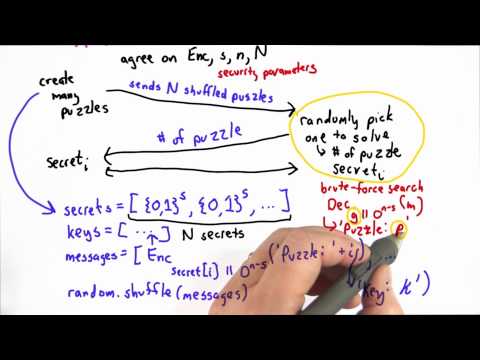 agree on Enc, s, n, N
security parameters
create
many
puzzles
sends N shuffled puzzles
randomly pick
one to solve
↳ # of puzzle
secret i
# of puzzle
secret i
brute-force search
Dec g || 0^n-s (m)
↳ 'Puzzle: p'
secrets = [ {0,1}^s, {0,1}^s, ... ]
N secrets
keys = [ ... ]
messages = [ Enc secret[i] || 0^n-s ('Puzzle: ' + i),
'Key: k')
random.shuffle(messages)